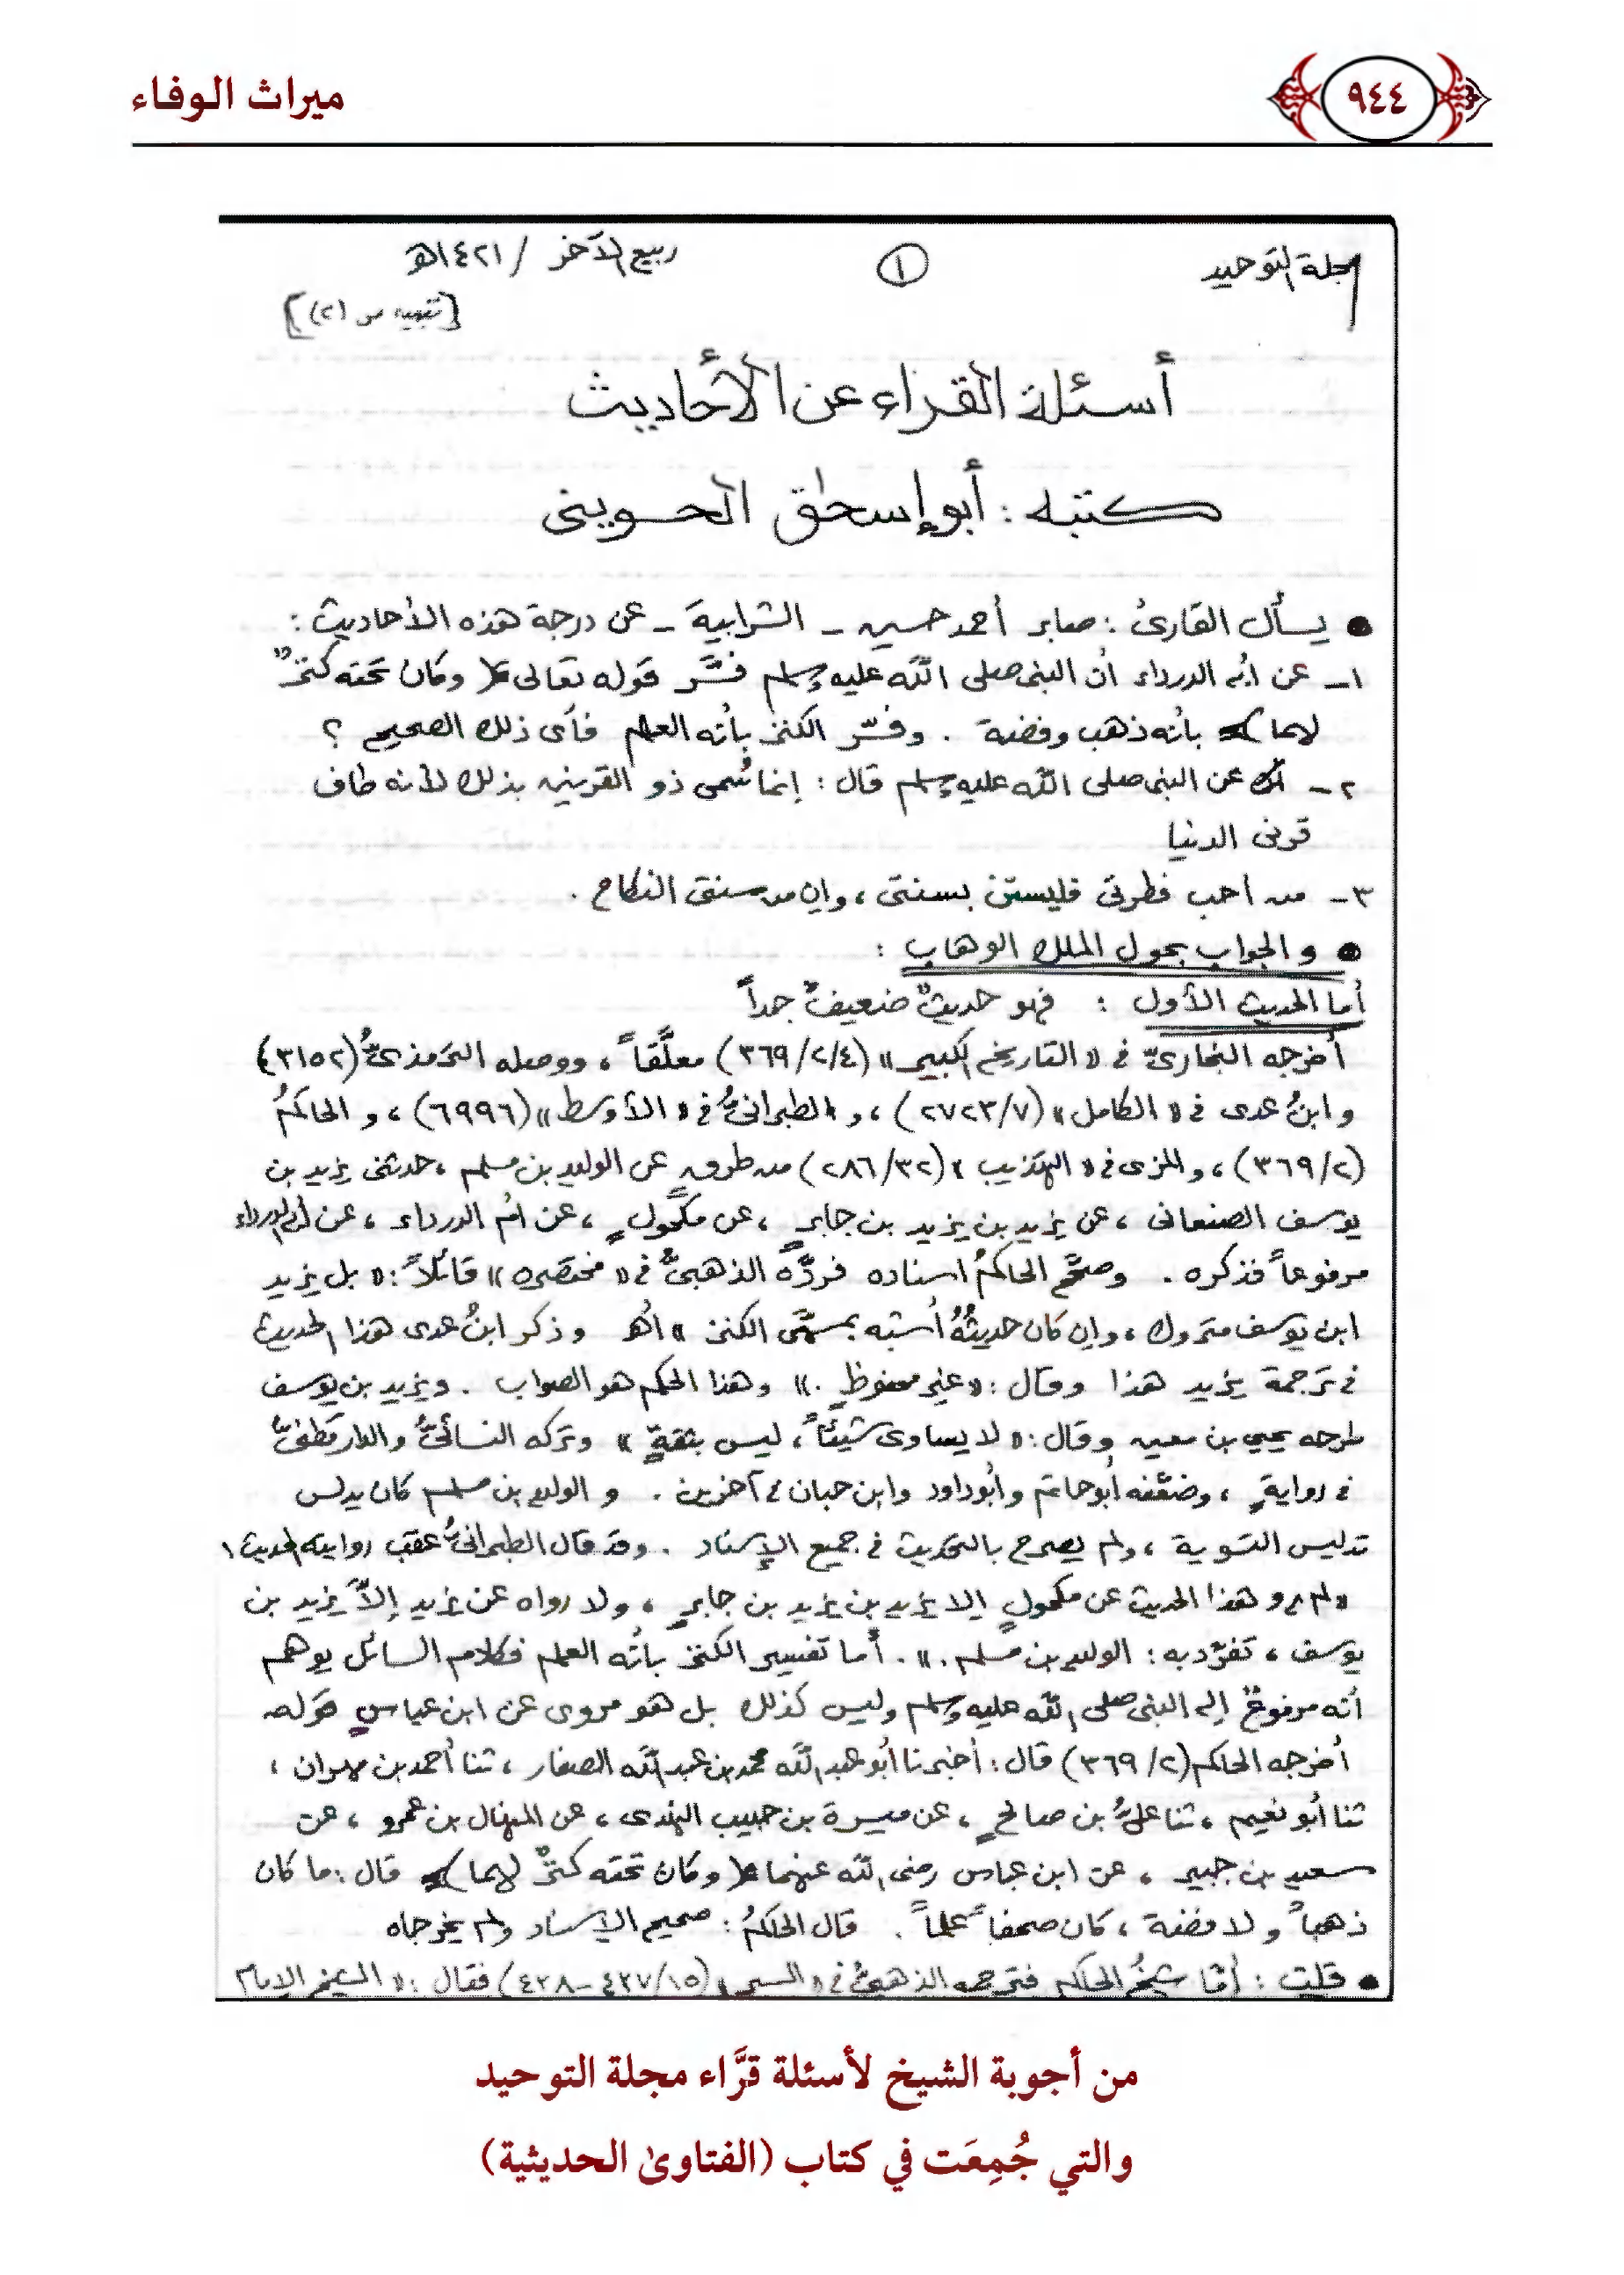 ميراث الوفاء
٩٤٤
مجلة التوحيد
١
ربيع الآخر / ١٤٢١هـ
[تنبيه ص (٢)]
أسئلة القراء عن الأحاديث
كتبه : أبو إسحٰق الحويني
● يسأل القارئ : صابر أحمد حسين - الشرابية - عن درجة هذه الأحاديث :
١- عن أبي الدرداء أن النبي صلى الله عليه وسلم فسَّر قوله تعالى ﴿ وكان تحته كنزٌ
لهما ﴾ بأنه ذهب وفضة . وفسّر الكنز بأنه العلم فأى ذلك الصحيح ؟
٢- عن النبي صلى الله عليه وسلم قال : إنما سُمى ذو القرنين بذلك لأنه طاف
قرنى الدنيا
٣- من أحب فطرتى فليستن بسنتى ، وإن من سنتى النكاح .
● والجواب بحول الملك الوهاب :
أما الحديث الأول : فهو حديثٌ ضعيفٌ جداً
أخرجه البخاريُّ في « التاريخ الكبير » (٣٦٩/٢/٤) معلَّقاً ، ووصله الترمذيُّ (٣١٥٢)
وابنُ عدى في « الكامل » (٢٧٢٣/٧) ، و الطبرانيُّ في « الأوسط » (٦٩٩٦) ، و الحاكمُ
(٣٦٩/٢) ، والمزى في « التهذيب » (٢٨٦/٣٢) من طرقٍ عن الوليد بن مسلم ، حدثنى يزيد بن
يوسف الصنعانى ، عن يزيد بن يزيد بن جابرٍ ، عن مكحولٍ ، عن أم الدرداء ، عن أبي الدرداء
مرفوعاً فذكره . وصحَّح الحاكمُ إسناده فردَّه الذهبىُّ في « مختصره » قائلاً : « بل يزيد
ابن يوسف متروك ، وإن كان حديثُهُ أشبه بمسمَّى الكنز » أهـ وذكر ابنُ عدى هذا الحديث
في ترجمة يزيد هذا وقال : « غير محفوظٍ . » وهذا الحكم هو الصواب . ويزيد بن يوسف
طرحه يحيى بن معين وقال : « لا يساوى شيئاً ، ليس بثقةٍ » وتركه النسائيُّ والدارقطنيُّ
في روايةٍ ، وضعَّفه أبو حاتم وأبو داود وابن حبان في آخرين . و الوليد بن مسلم كان يدلس
تدليس التسوية ، ولم يصرح بالتحديث في جميع الإسناد . وقد قال الطبرانىُّ عقب روايته الحديث :
« لم يرو هذا الحديث عن مكحولٍ إلا يزيد بن يزيد بن جابرٍ ، ولا رواه عن يزيد إلاَّ يزيد بن
يوسف ، تفرَّد به : الوليد بن مسلم . » . أما تفسير الكنز بأنه العلم فكلام السائل يوهم
أنه مرفوعٌ إلى النبي صلى الله عليه وسلم وليس كذلك بل هو مروى عن ابن عباسٍ قوله
أخرجه الحاكم (٣٦٩/٢) قال : أخبرنا أبو عبد الله محمد بن عبد الله الصفار ، ثنا أحمد بن مهران ،
ثنا أبو نعيم ، ثنا علىُّ بن صالحٍ ، عن ميسرة بن حبيب النهدى ، عن المنهال بن عمرو ، عن
سعيد بن جبير ، عن ابن عباس رضى الله عنهما ﴿ وكان تحته كنزٌ لهما ﴾ قال : ما كان
ذهباً ولا فضة ، كان صحفاً علماً . قال الحاكمُ : صحيح الإسناد ولم يخرجاه
● قلت : أمَّا شيخُ الحاكم فترجمه الذهبىُّ في « السير » (٤٣٧/١٥-٤٣٨) فقال : « الشيخ الإمام
من أجوبة الشيخ لأسئلة قرَّاء مجلة التوحيد
والتي جُمِعَت في كتاب (الفتاوىٰ الحديثية)